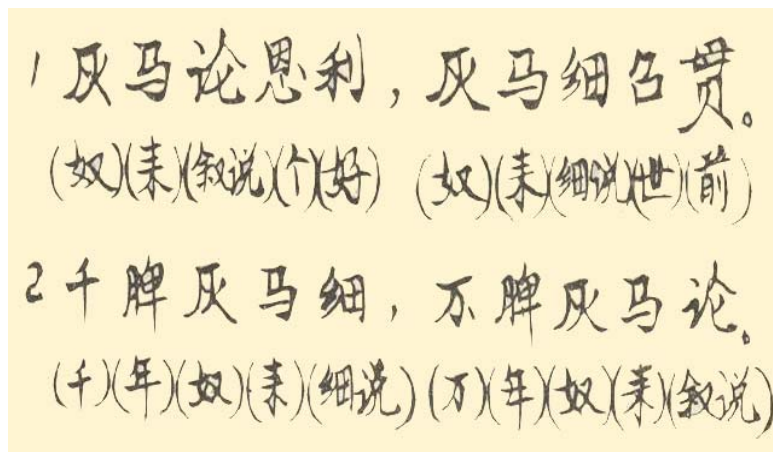 1灰马论恩利，灰马细召贯。
(奴)(来)(叙说)(个)(好) (奴)(来)(细说)(世)(前)
2千脾灰马细，万脾灰马论。
(千)(年)(奴)(来)(细说)(万)(年)(奴)(来)(叙说)